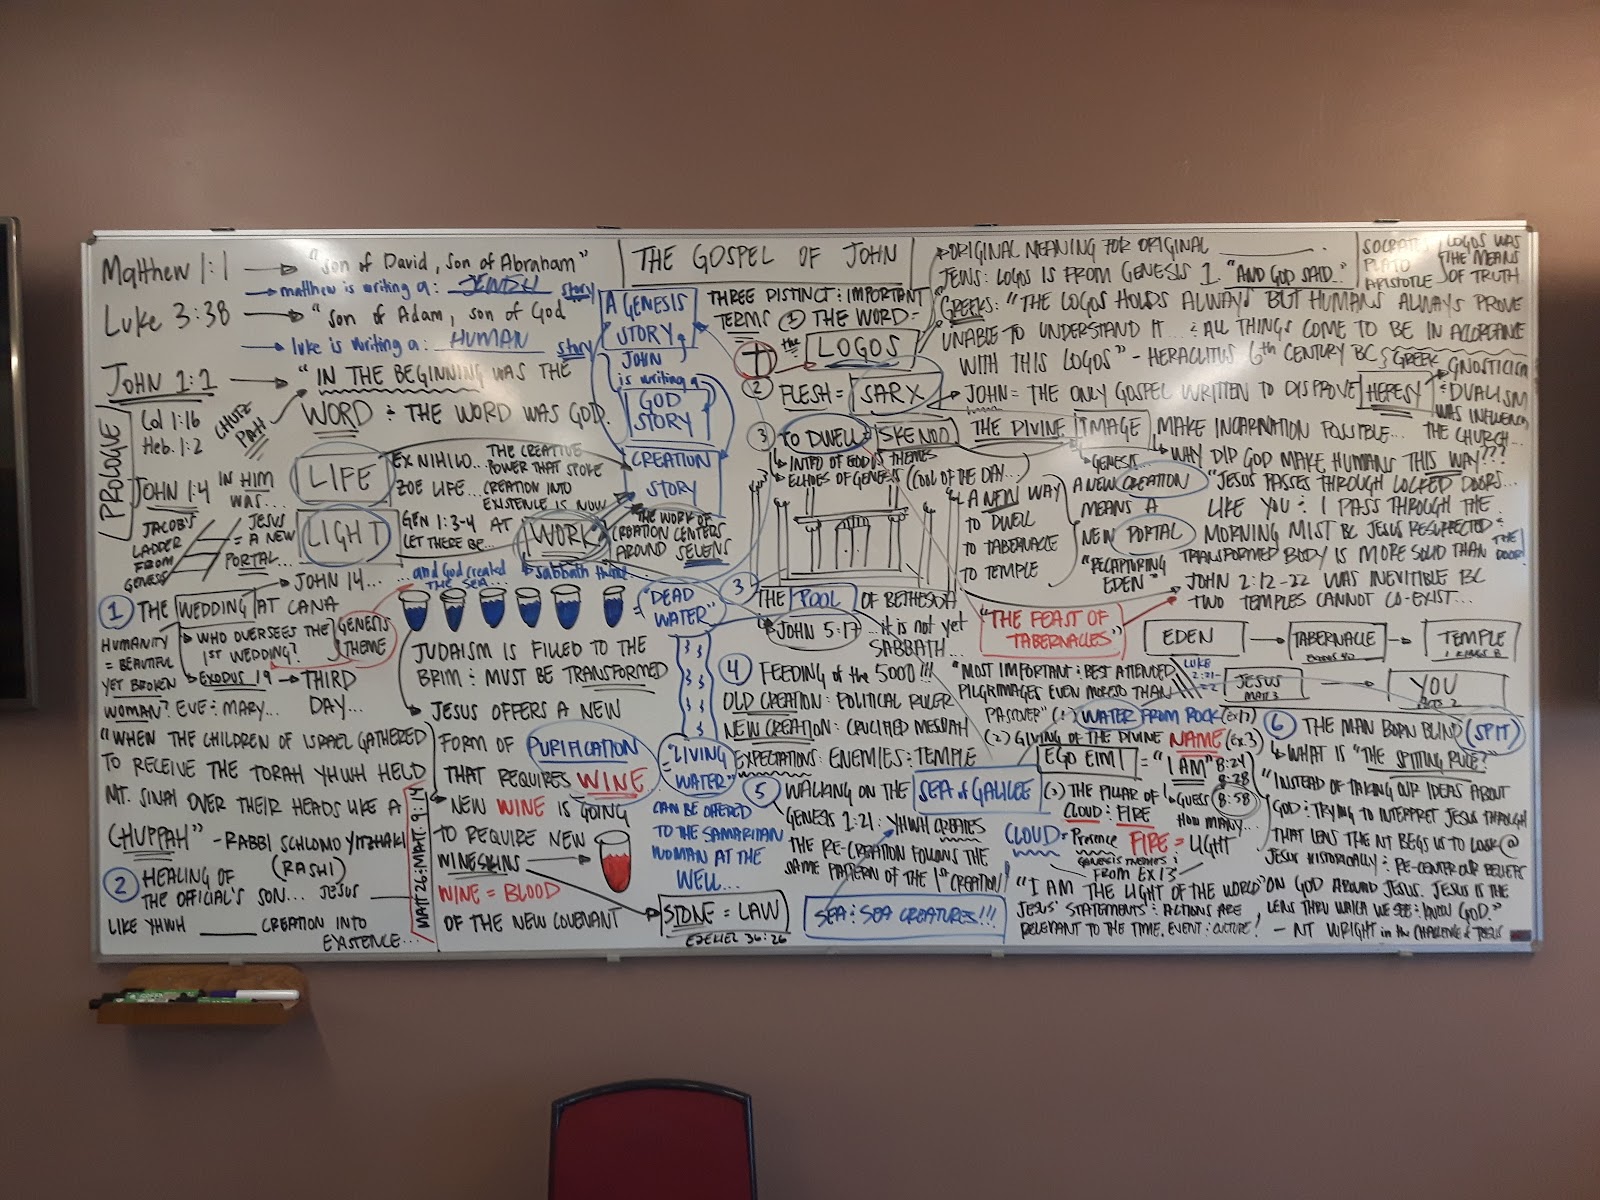 THE GOSPEL OF JOHN
Matthew 1:1 → "son of David, son of Abraham"
→ matthew is writing a: JEWISH story
Luke 3:38 → "son of Adam, son of God
→ luke is writing a: HUMAN story
JOHN 1:1 → "IN THE BEGINNING WAS THE
WORD : THE WORD WAS GOD.
CHUTZ
PAH
PROLOGUE
Col 1:16
Heb. 1:2
JOHN 1:4
IN HIM
WAS...
LIFE
EX NIHILO...
ZOE LIFE...
THE CREATIVE
POWER THAT SPOKE
CREATION INTO
EXISTENCE IS NOW
LIGHT
GEN 1:3-4 AT
LET THERE BE...
WORK
THE WORK OF
CREATION CENTERS
AROUND SEVENS
JACOB'S
LADDER
FROM
GENESIS
JESUS
= A NEW
PORTAL...
→ JOHN 14...
A GENESIS
STORY
JOHN
is writing a
GOD
STORY
CREATION
STORY
...and God created
THE SEA...
sabbath theme...
= "DEAD
WATER"
① THE WEDDING AT CANA
HUMANITY
= BEAUTIFUL
YET BROKEN
→ WHO OVERSEES THE
1ST WEDDING?
GENESIS
THEME
→ EXODUS 19 → THIRD
DAY...
WOMAN? EVE : MARY...
"WHEN THE CHILDREN OF ISRAEL GATHERED
TO RECEIVE THE TORAH YHWH HELD
MT. SINAI OVER THEIR HEADS LIKE A
CHUPPAH" - RABBI SCHLOMO YITZHAKI
(RASHI)
② HEALING OF
THE OFFICIAL'S SON... JESUS
LIKE YHWH ______ CREATION INTO
EXISTENCE...
MATT 26 : MATT. 9:14
JUDAISM IS FILLED TO THE
BRIM : MUST BE TRANSFORMED
JESUS OFFERS A NEW
FORM OF PURIFICATION
THAT REQUIRES WINE
NEW WINE IS GOING
TO REQUIRE NEW
WINESKINS
WINE = BLOOD
OF THE NEW COVENANT
STONE = LAW
EZEKIEL 36:26
"LIVING
WATER"
CAN BE OFFERED
TO THE SAMARITAN
WOMAN AT THE
WELL...
THREE DISTINCT : IMPORTANT
TERMS ① THE WORD =
the LOGOS
② FLESH = SARX
③ TO DWELL = SKENOO
↳ INTRO OF EXODUS THEMES
↳ ECHOES OF GENESIS (COOL OF THE DAY...)
A NEW WAY
TO DWELL
TO TABERNACLE
TO TEMPLE
→ ORIGINAL MEANING FOR ORIGINAL ______ .
JEWS: LOGOS IS FROM GENESIS 1. "AND GOD SAID..."
GREEKS: "THE LOGOS HOLDS ALWAYS BUT HUMANS ALWAYS PROVE
UNABLE TO UNDERSTAND IT... : ALL THINGS COME TO BE IN ACCORDANCE
WITH THIS LOGOS" - HERACLITUS 6th CENTURY BC GREEK
SOCRATES
PLATO
ARISTOTLE
LOGOS WAS
THE MEANS
OF TRUTH
→ JOHN = THE ONLY GOSPEL WRITTEN TO DISPROVE HERESY
→ GNOSTICISM
: DUALISM
WAS INFLUENCING
THE CHURCH...
THE DIVINE IMAGE MAKE INCARNATION POSSIBLE...
↳ GENESIS...
↳ WHY DID GOD MAKE HUMANS THIS WAY???
A NEW CREATION
MEANS A
NEW PORTAL
"RECAPTURING
EDEN"
"JESUS PASSES THROUGH LOCKED DOORS...
LIKE YOU : I PASS THROUGH THE
MORNING MIST BC JESUS RESURRECTED :
TRANSFORMED BODY IS MORE SOLID THAN THE
DOOR!
→ JOHN 2:12-22 WAS INEVITIBLE BC
TWO TEMPLES CANNOT CO-EXIST...
③ THE POOL OF BETHESDA
JOHN 5:17 ...it is not yet
SABBATH...
"THE FEAST OF
TABERNACLES"
EDEN → TABERNACLE → TEMPLE
EXODUS 40
1 KINGS 8
LUKE
JESUS → YOU
MATT. 3
ACTS 2
④ FEEDING of the 5000!!!
OLD CREATION: POLITICAL RULER
NEW CREATION: CRUCIFIED MESSIAH
EXPECTATIONS: ENEMIES : TEMPLE
⑤ WALKING ON THE SEA of GALILEE
GENESIS 1:21: YHWH CREATES
THE RE-CREATION FOLLOWS THE
SAME PATTERN OF THE 1ST CREATION!
SEA : SEA CREATURES!!!
"MOST IMPORTANT : BEST ATTENDED
PILGRIMAGES EVEN MORESO THAN
PASSOVER" (1) WATER FROM ROCK (EX 17)
(2) GIVING OF THE DIVINE NAME (EX. 3)
EGO EIMI = "I AM" 8:24
8:28
8:58
(3) THE PILLAR OF
CLOUD : FIRE
GUESS
HOW MANY...
CLOUD = Presence FIRE = LIGHT
GENESIS THEMES :
FROM EX 13
"I AM THE LIGHT OF THE WORLD"
JESUS' STATEMENTS : ACTIONS ARE
RELEVANT TO THE TIME, EVENT : CULTURE!
⑥ THE MAN BORN BLIND (SPIT)
↳ WHAT IS "THE SPITTING RULE?"
"INSTEAD OF TAKING OUR IDEAS ABOUT
GOD : TRYING TO INTERPRET JESUS THROUGH
THAT LENS THE NT BEGS US TO LOOK @
JESUS HISTORICALLY : RE-CENTER OUR BELIEFS
ON GOD AROUND JESUS. JESUS IS THE
LENS THRU WHICH WE SEE : KNOW GOD."
- NT WRIGHT in the CHALLENGE of JESUS